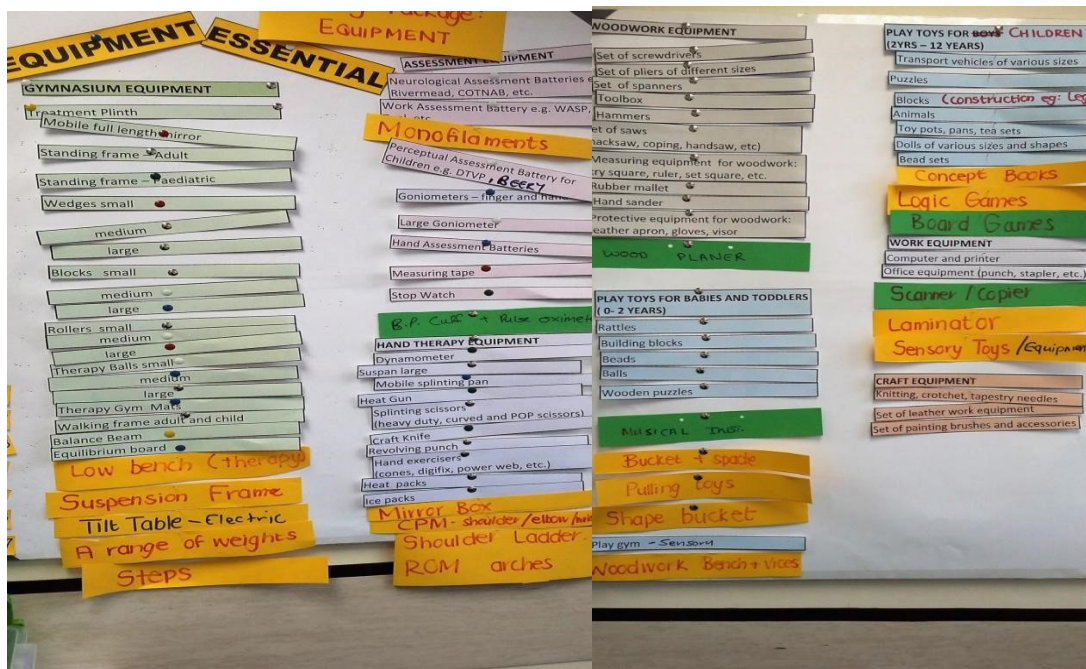 Package:
EQUIPMENT
EQUIPMENT
ESSENTIAL
GYMNASIUM EQUIPMENT
Treatment Plinth
Mobile full length mirror
Standing frame – Adult
Standing frame – Paediatric
Wedges small
medium
large
Blocks small
medium
large
Rollers small
medium
large
Therapy Balls small
medium
large
Therapy Gym Mats
Walking frame adult and child
Balance Beam
Equilibrium board
Low bench (therapy)
Suspension Frame
Tilt Table – Electric
A range of weights
Steps
ASSESSMENT EQUIPMENT
Neurological Assessment Batteries
Rivermead, COTNAB, etc.
Work Assessment Battery e.g. WASP,
Monofilaments
Perceptual Assessment Battery for
Children e.g. DTVP, BEERY
Goniometers – finger and
Large Goniometer
Hand Assessment Batteries
Measuring tape
Stop Watch
B.P. Cuff + Pulse
HAND THERAPY EQUIPMENT
Dynamometer
Suspan large
Mobile splinting pan
Heat Gun
Splinting scissors
(heavy duty, curved and POP scissors)
Craft Knife
Revolving punch
Hand exercisers
(cones, digifix, power web, etc.)
Heat packs
Ice packs
Mirror Box
CPM - shoulder/elbow/
Shoulder Ladder
ROM arches
WOODWORK EQUIPMENT
Set of screwdrivers
Set of pliers of different sizes
Set of spanners
Toolbox
Hammers
et of saws
hacksaw, coping, handsaw, etc)
Measuring equipment for woodwork:
try square, ruler, set square, etc.
Rubber mallet
Hand sander
Protective equipment for woodwork:
leather apron, gloves, visor
WOOD PLANER
PLAY TOYS FOR BABIES AND TODDLERS
( 0- 2 YEARS)
Rattles
Building blocks
Beads
Balls
Wooden puzzles
MUSICAL
Bucket + spade
Pulling toys
Shape bucket
Play gym – Sensory
Woodwork Bench + Vices
PLAY TOYS FOR BOYS CHILDREN
(2YRS – 12 YEARS)
Transport vehicles of various sizes
Puzzles
Blocks (construction eg:
Animals
Toy pots, pans, tea sets
Dolls of various sizes and shapes
Bead sets
Concept Books
Logic Games
Board Games
WORK EQUIPMENT
Computer and printer
Office equipment (punch, stapler, etc.)
Scanner / Copier
Laminator
Sensory Toys /Equipment
CRAFT EQUIPMENT
Knitting, crotchet, tapestry needles
Set of leather work equipment
Set of painting brushes and accessories